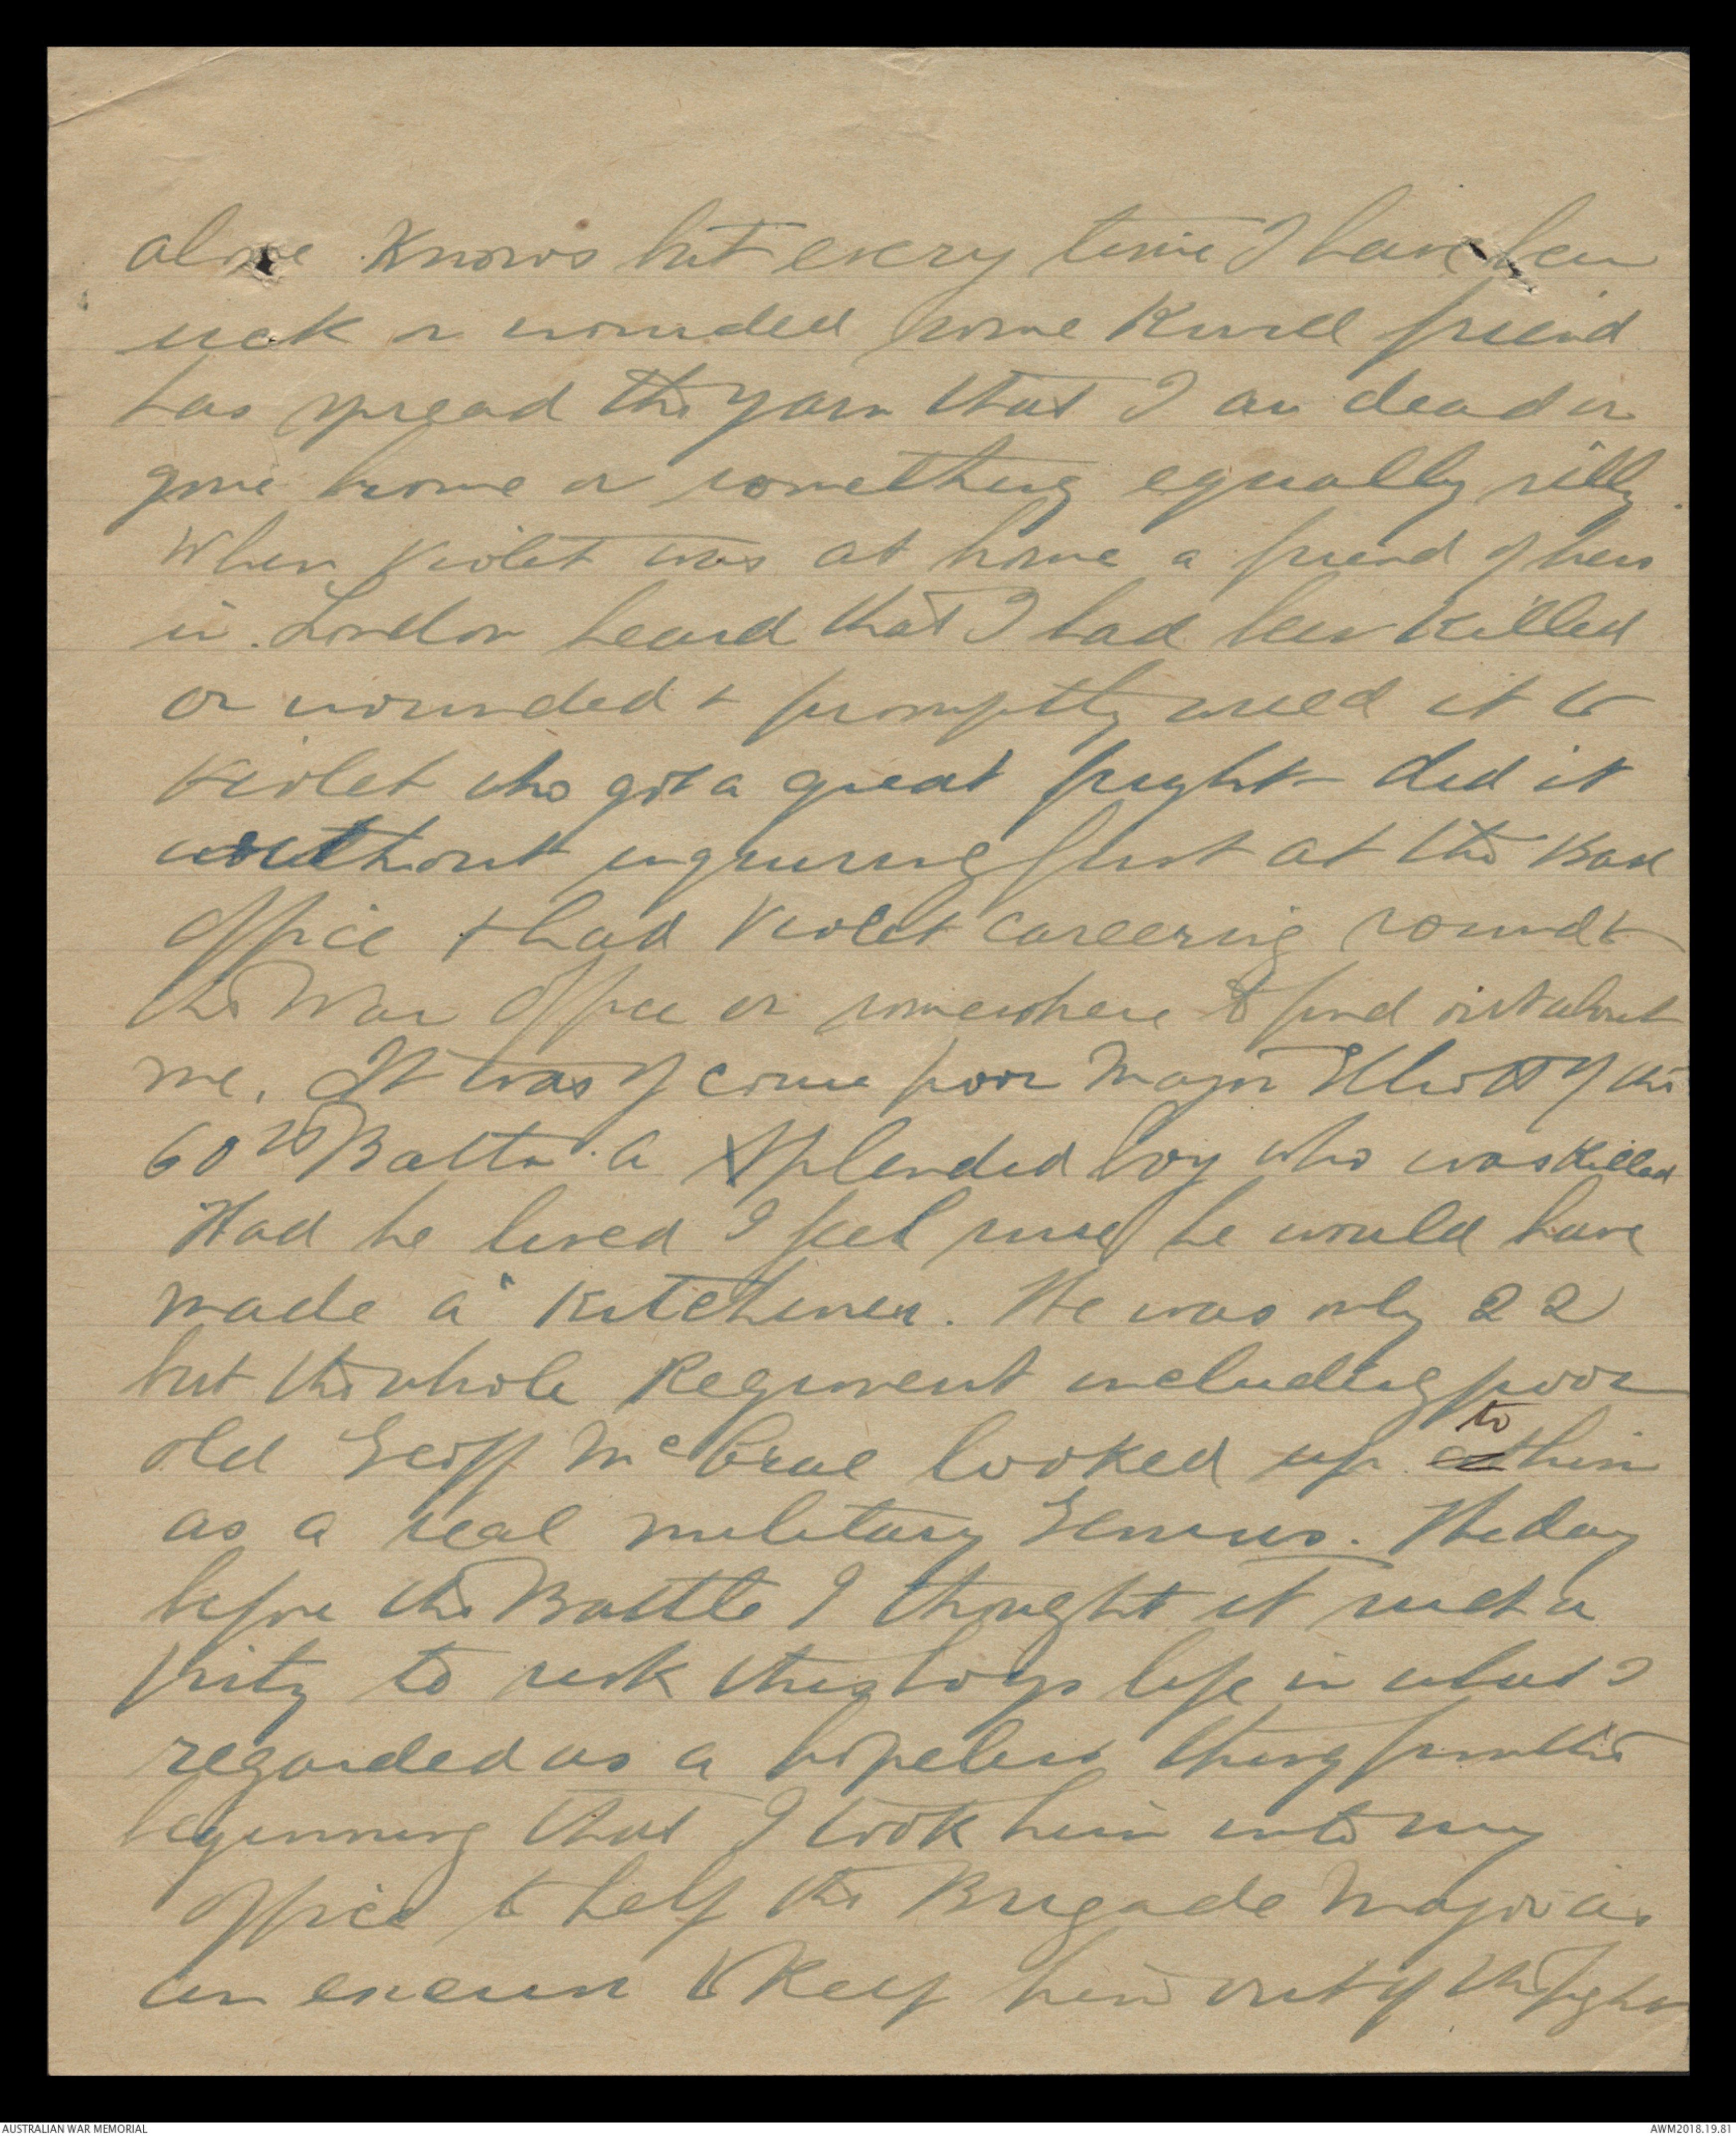 alone knows but every time I have been
sick or wounded some kind friend
has spread the yarn that I am dead or
gone home or something equally silly.
When Violet was at home a friend of hers
in London heard that I had been killed
or wounded + promptly wired it to
Violet who got a great fright did it
without inquiring first at the War
Office + had Violet careering round to
the War Office or somewhere to find out about
me. It was of course poor Major Elliott of the
60th Battn. a splendid boy who was killed
Had he lived I feel sure he would have
made a "Kitchener. He was only 22
but the whole Regiment including poor
old Geoff McCrae looked up to him
as a real military Genius. The day
before the Battle I thought it such a
pity to risk this boys life in what I
regarded as a hopeless thing from the
beginning that I took him into my
office to help the Brigade Major as
an excuse to keep him out of the fight
AUSTRALIAN WAR MEMORIAL
AWM2018.19.81